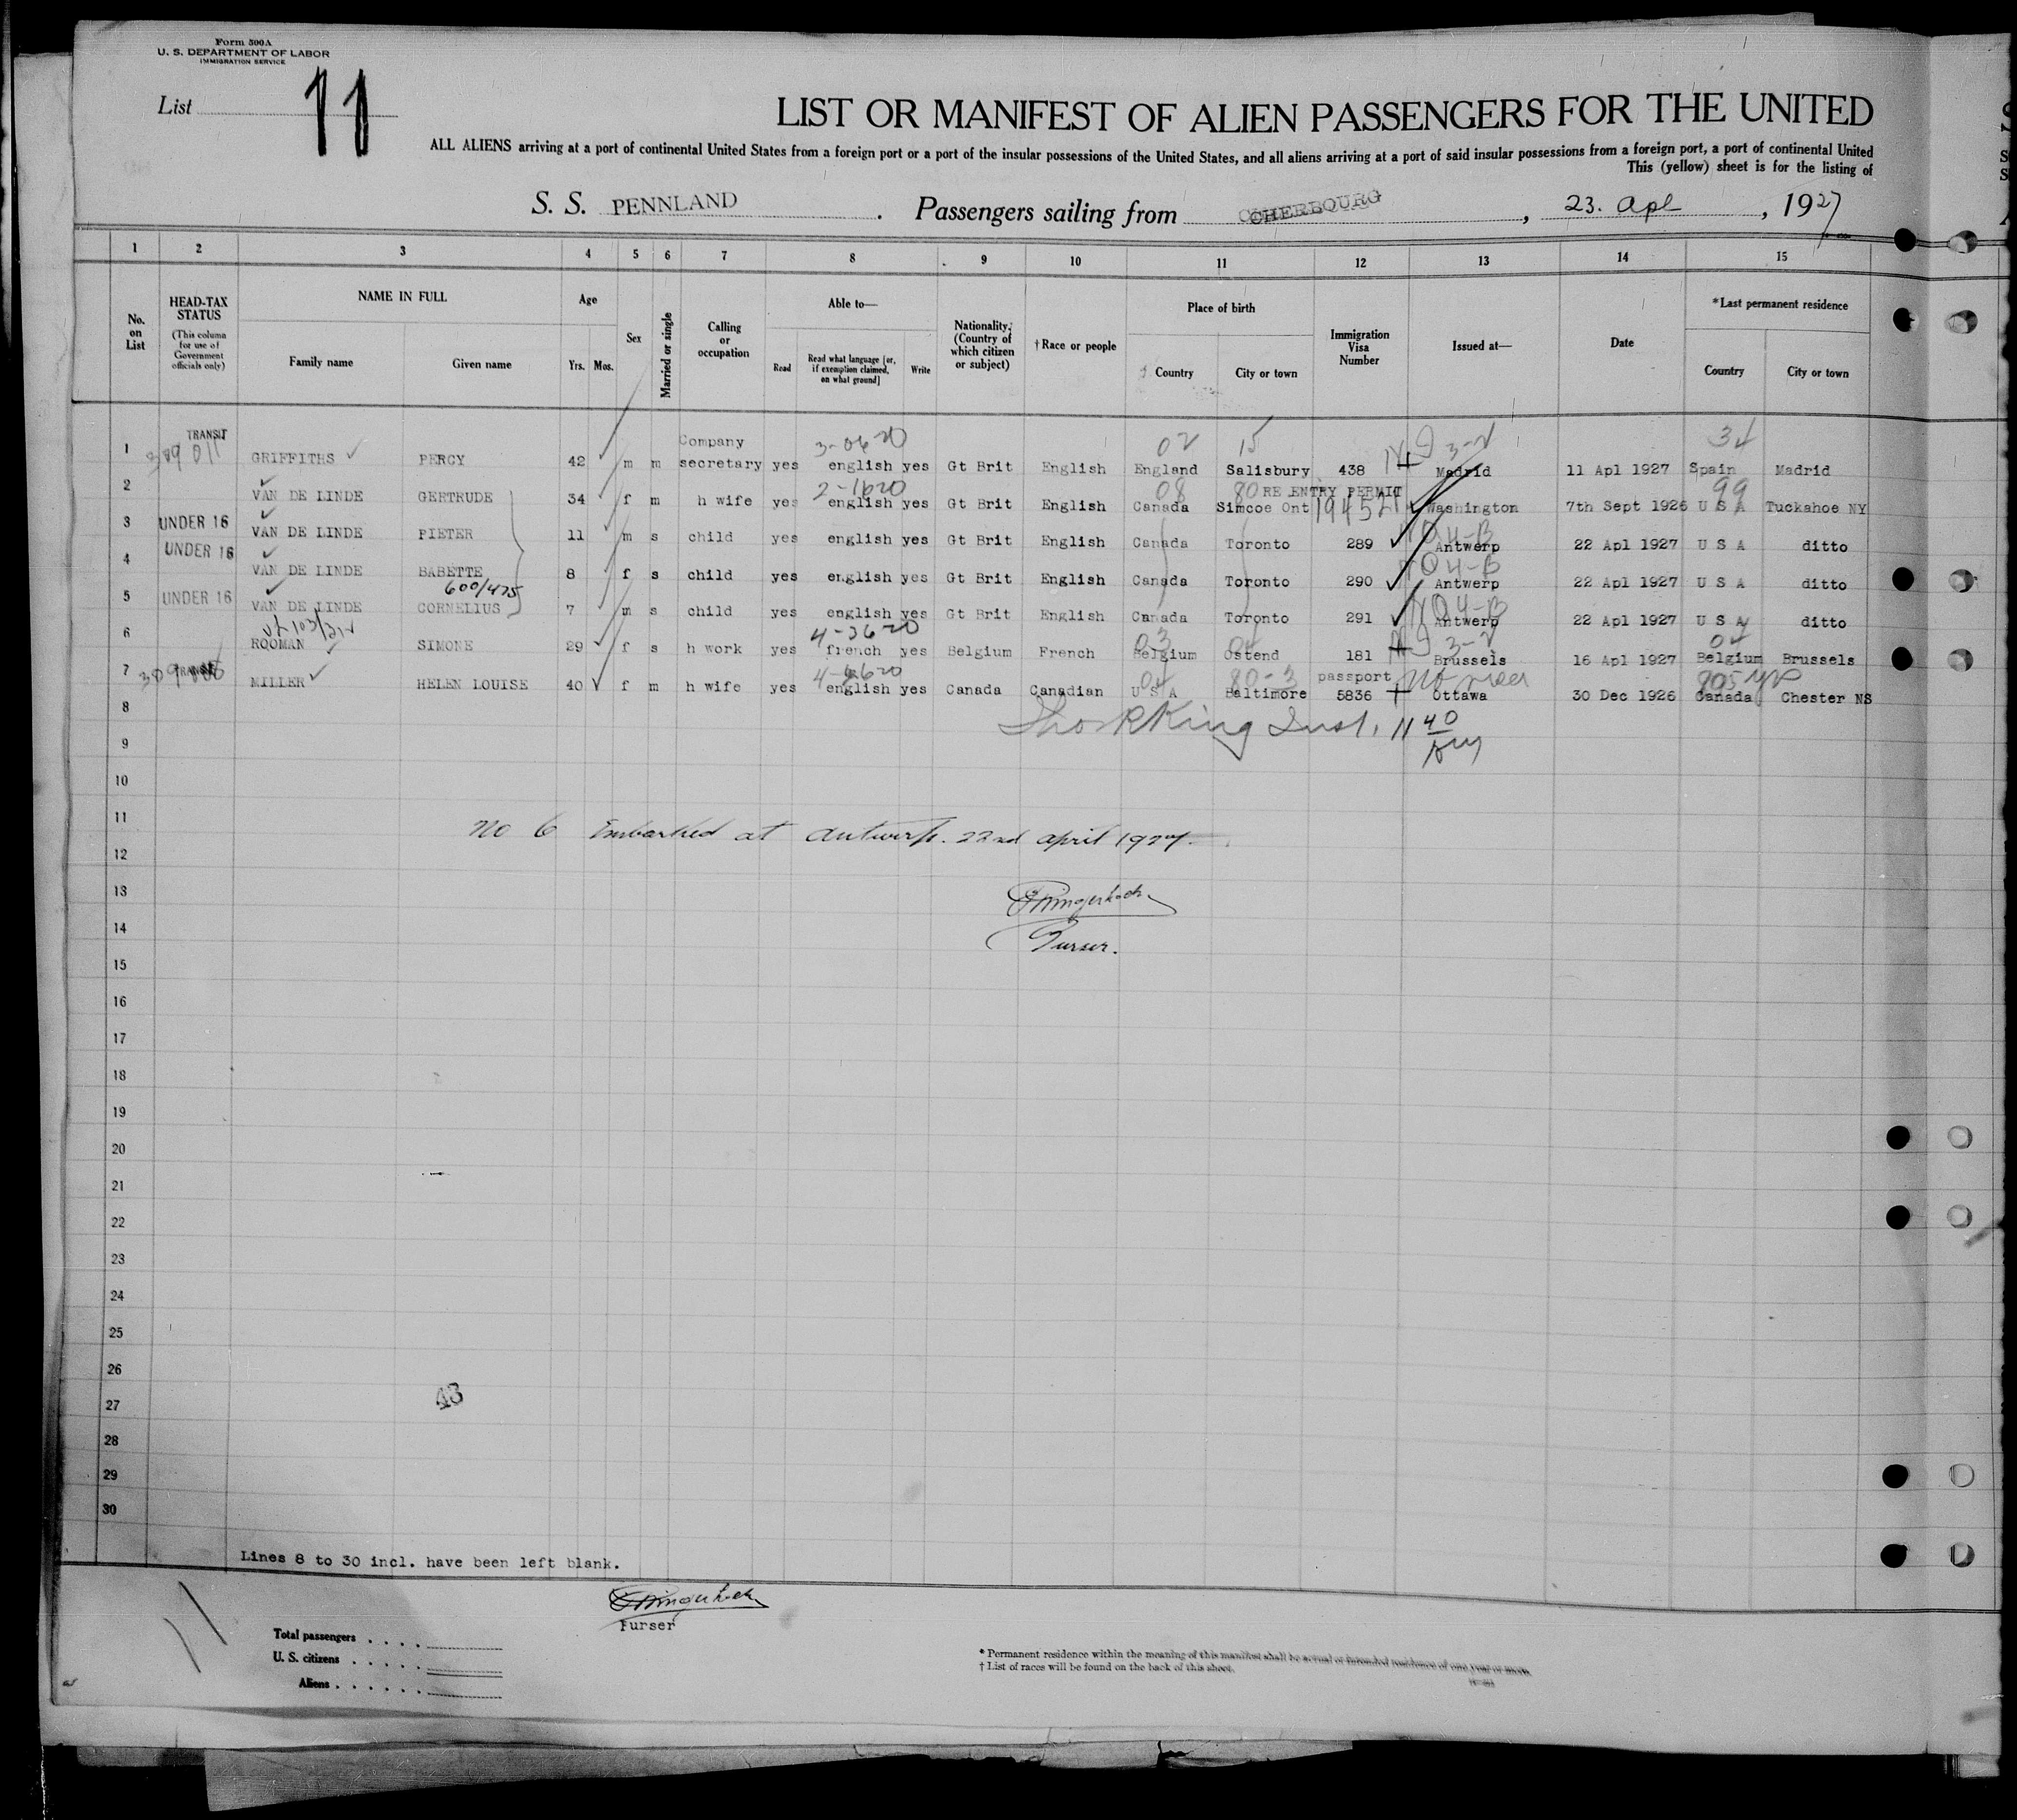 Form 500A
U. S. DEPARTMENT OF LABOR
IMMIGRATION SERVICE
List 11
LIST OR MANIFEST OF ALIEN PASSENGERS FOR THE UNITED
ALL ALIENS arriving at a port of continental United States from a foreign port or a port of the insular possessions of the United States, and all aliens arriving at a port of said insular possessions from a foreign port, a port of continental United
This (yellow) sheet is for the listing of
S. S. PENNLAND . Passengers sailing from CHERBOURG , 23. Apl , 1927
1 2 3 4 5 6 7 8 9 10 11 12 13 14 15
No. on List
HEAD-TAX STATUS
(This column for use of Government officials only)
NAME IN FULL
Family name
Given name
Age
Yrs.
Mos.
Sex
Married or single
Calling or occupation
Able to—
Read
Read what language [or, if exemption claimed, on what ground]
Write
Nationality. (Country of which citizen or subject)
†Race or people
Place of birth
Country
City or town
Immigration Visa Number
Issued at—
Date
*Last permanent residence
Country
City or town
3-0620 02 15 3-2 34
1 TRANSIT GRIFFITHS PERCY 42 m m Company secretary yes english yes Gt Brit English England Salisbury 438 Madrid 11 Apl 1927 Spain Madrid
2-1620 08 80 RE ENTRY PERMIT 99
2 VAN DE LINDE GERTRUDE 34 f m h wife yes english yes Gt Brit English Canada Simcoe Ont 194521 Washington 7th Sept 1926 U S A Tuckahoe NY
3 UNDER 16 VAN DE LINDE PIETER 11 m s child yes english yes Gt Brit English Canada Toronto 289 Antwerp 22 Apl 1927 U S A ditto
4 UNDER 16 VAN DE LINDE BABETTE 8 f s child yes english yes Gt Brit English Canada Toronto 290 Antwerp 22 Apl 1927 U S A ditto
600/475
5 UNDER 16 VAN DE LINDE CORNELIUS 7 m s child yes english yes Gt Brit English Canada Toronto 291 Antwerp 22 Apl 1927 U S A ditto
4-3620 03 04 3-2 04
6 ROOMAN SIMONE 29 f s h work yes french yes Belgium French Belgium Ostend 181 Brussels 16 Apl 1927 Belgium Brussels
80-3 passport
7 TRANSIT MILLER HELEN LOUISE 40 f m h wife yes english yes Canada Canadian U S A Baltimore 5836 Ottawa 30 Dec 1926 Canada Chester NS
8
King Insp. 11 40
9
10
11
No 6 Embarked at Antwerp. 22nd April 1927.
12
13
14
Purser.
15
16
17
18
19
20
21
22
23
24
25
26
43
27
28
29
30
Lines 8 to 30 incl. have been left blank.
Purser
11
Total passengers
U. S. citizens
Aliens
* Permanent residence within the meaning of this manifest shall be actual or intended residence of one year or more.
† List of races will be found on the back of this sheet.